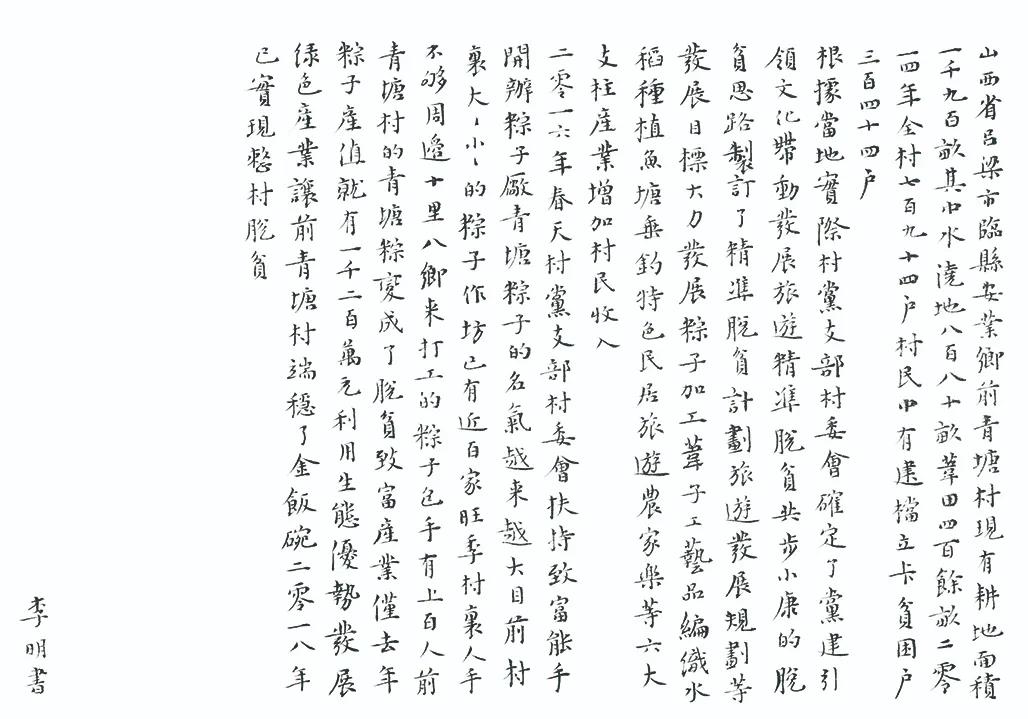 山西省呂梁市臨縣安業鄉前青塘村現有耕地面積
一千九百畝其中水澆地八百八十畝葦田四百餘畝二零
一四年全村七百九十四户村民中有建檔立卡貧困户
三百四十四户
根據當地實際村黨支部村委會確定了黨建引
領文化帶動發展旅遊精準脫貧共步小康的脫
貧思路製訂了精準脫貧計劃旅遊發展規劃等
發展目標大力發展粽子加工葦子工藝品編織水
稻種植魚塘垂釣特色民居旅遊農家樂等六大
支柱産業增加村民收入
二零一六年春天村黨支部村委會扶持致富能手
開辦粽子廠青塘粽子的名氣越来越大目前村
裏大大小小的粽子作坊已有近百家旺季村裏人手
不够周邊十里八鄉来打工的粽子包手有上百人前
青塘村的青塘粽變成了脫貧致富産業僅去年
粽子産值就有一千二百萬元利用生態優勢發展
绿色産業讓前青塘村端穩了金飯碗二零一八年
已實現整村脫貧
李明書